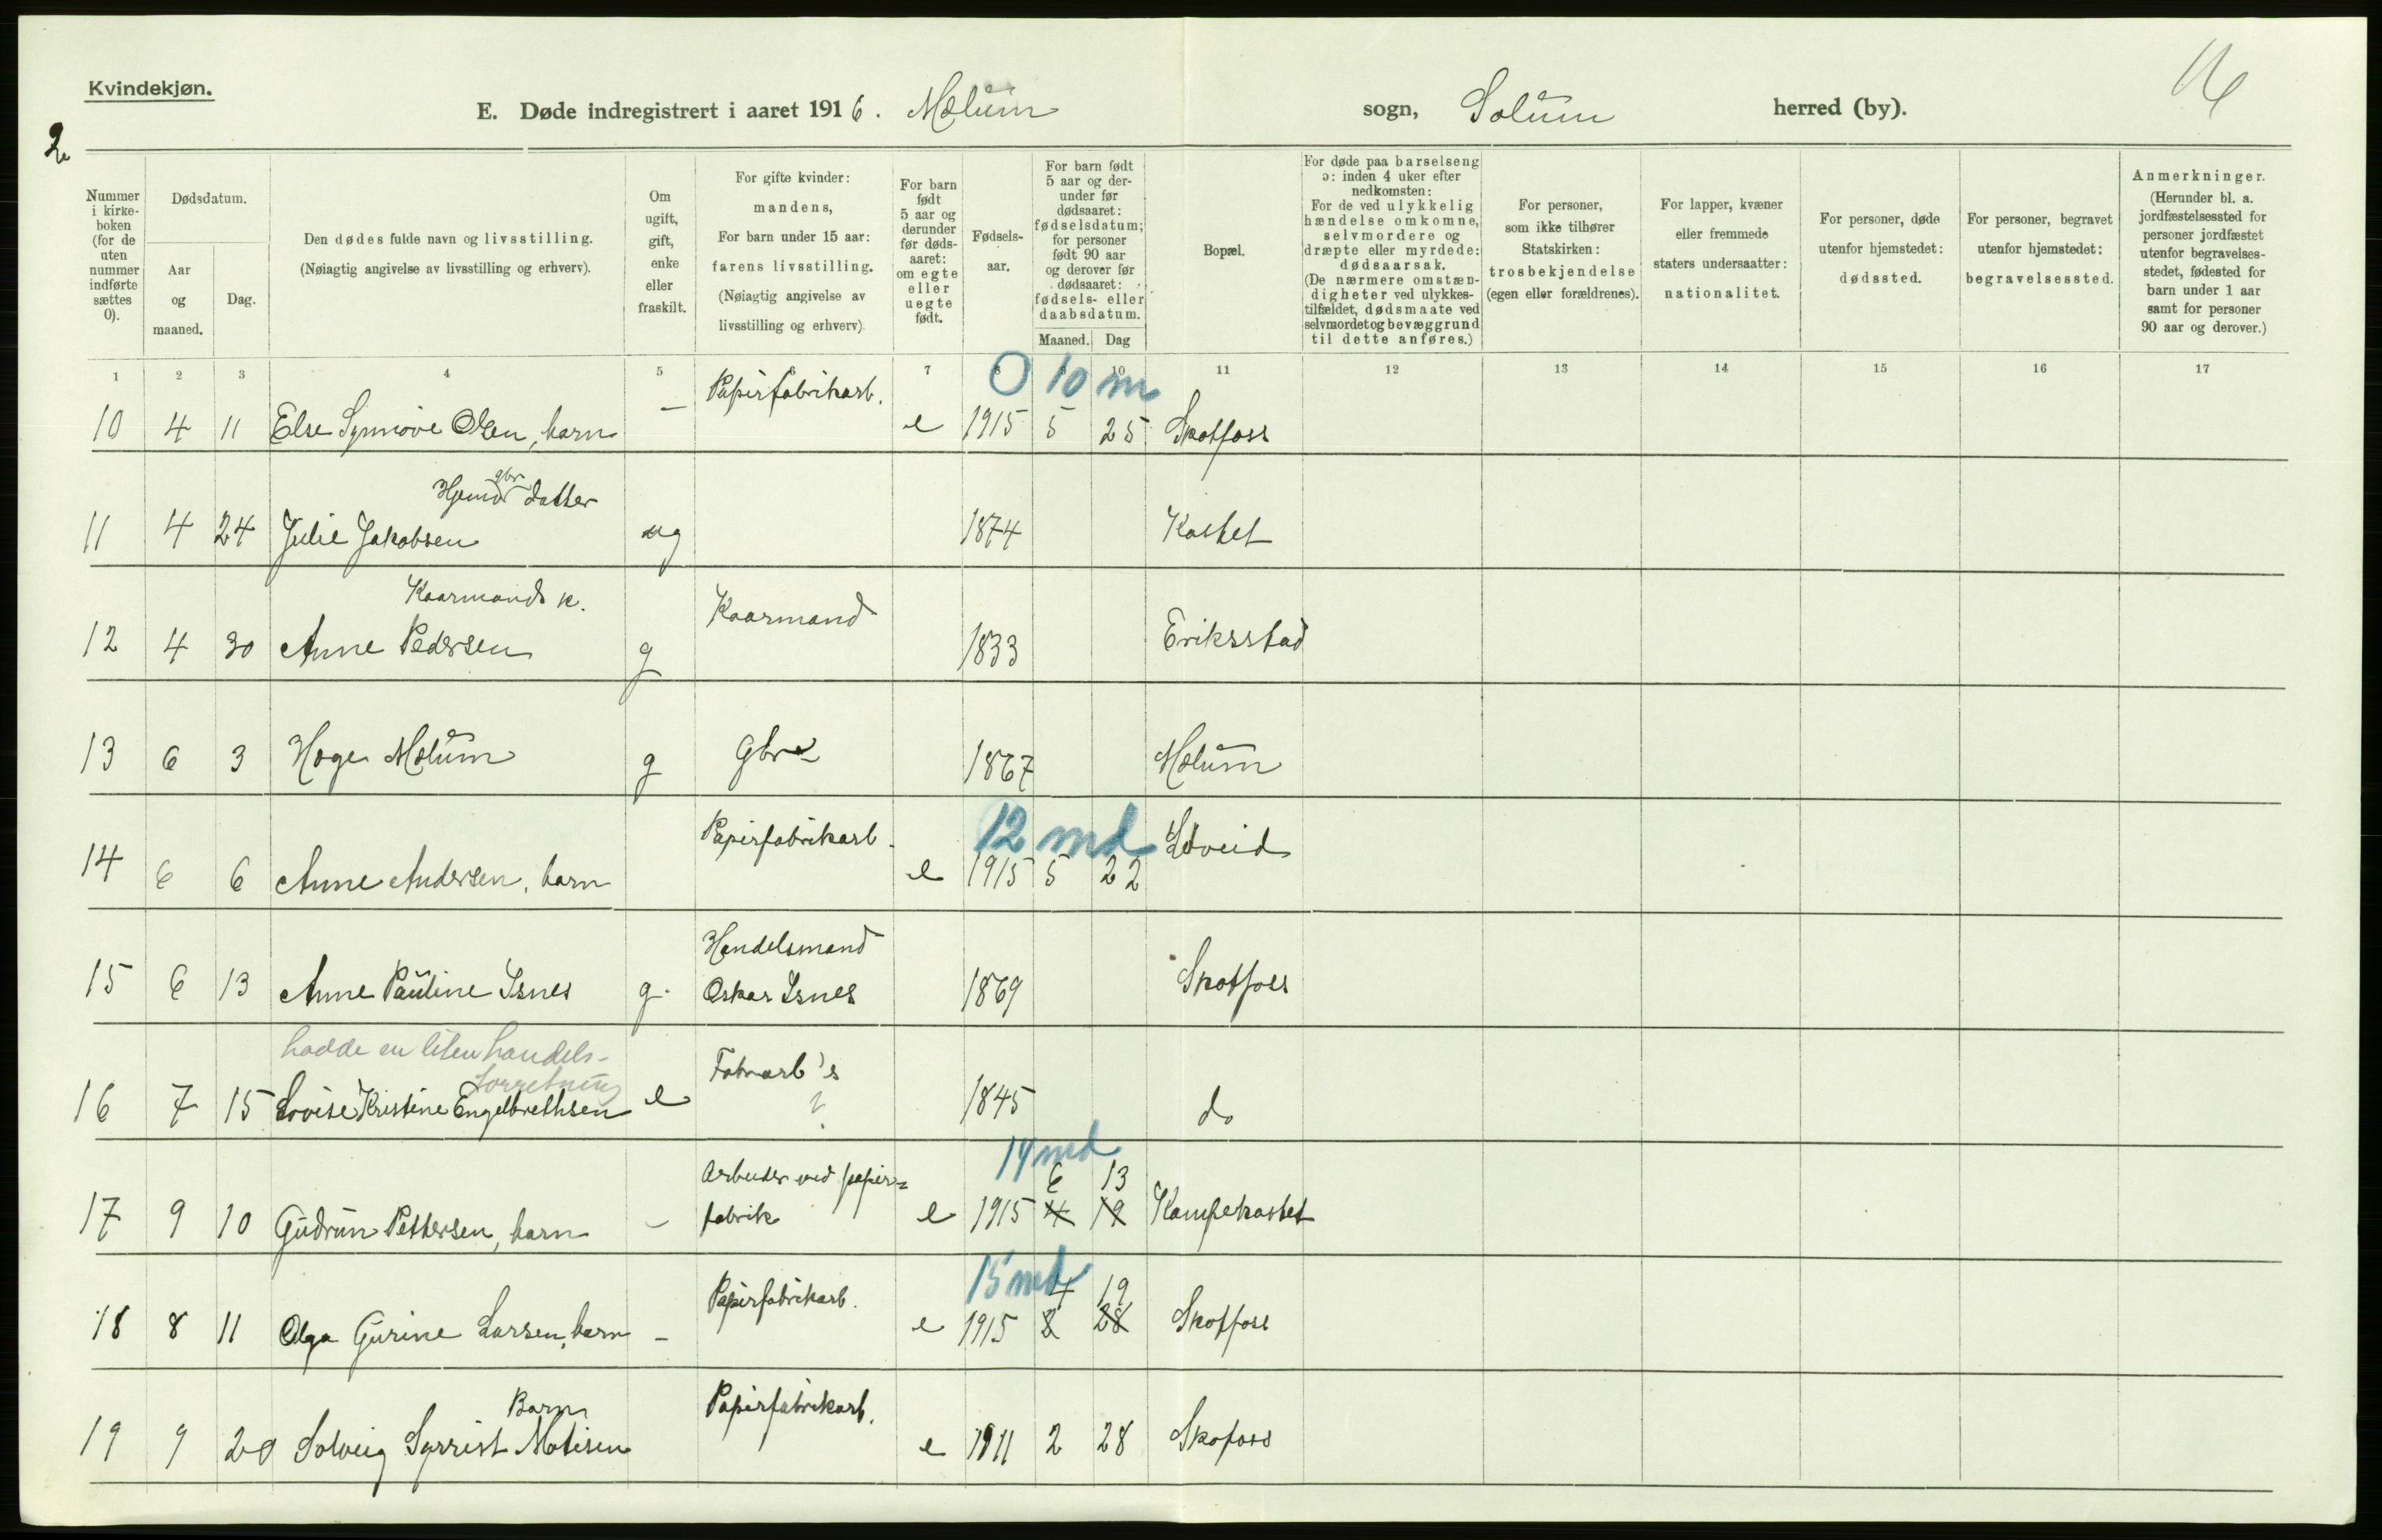 Kvindekjøn.
E. Døde indregistrert i aaret 1916. Melum sogn, Solum herred (by).
2
Nummer i kirke-boken (for de uten nummer indførte sættes 0).
Dødsdatum.
Aar og maaned.
Dag.
Den dødes fulde navn og livsstilling.
(Nøiagtig angivelse av livsstilling og erhverv).
Om ugift, gift, enke eller fraskilt.
For gifte kvinder: mandens,
For barn under 15 aar: farens livsstilling.
(Nøiagtig angivelse av livsstilling og erhverv)
For barn født 5 aar og derunder før døds-aaret: om egte eller uegte født.
Fødsels-aar.
For barn født 5 aar og der-under før dødsaaret: fødselsdatum; for personer født 90 aar og derover før dødsaaret: fødsels- eller daabsdatum.
Maaned. Dag
Bopæl.
For døde paa barselseng ɔ: inden 4 uker efter nedkomsten:
For de ved ulykkelig hændelse omkomne, selvmordere og dræpte eller myrdede: dødsaarsak.
(De nærmere omstæn-digheter ved ulykkes-tilfældet, dødsmaate ved selvmordet og bevæggrund til dette anføres.)
For personer, som ikke tilhører Statskirken: trosbekjendelse (egen eller forældrenes).
For lapper, kvæner eller fremmede staters undersaatter: nationalitet.
For personer, døde utenfor hjemstedet: dødssted.
For personer, begravet utenfor hjemstedet: begravelsessted.
Anmerkninger.
(Herunder bl. a. jordfæstelsessted for personer jordfæstet utenfor begravelses-stedet, fødested for barn under 1 aar samt for personer 90 aar og derover.)
1 2 3 4 5 7 8 9 10 11 12 13 14 15 16 17
0 10 m
Papirfabrikarb.
10 4 11 Else Synnøve Olsen, barn — e 1915 5 25 Skotfoss
gbr
Hjemv datter
11 4 24 Julie Jakobsen ug 1874 Kastet
Kaarmands k. Kaarmand
12 4 30 Anne Pedersen g 1833 Eriksstad
13 6 3 Hege Melum g Gbr 1867 Melum
Papirfabrikarb. 12 md
14 6 6 Anne Andersen, barn e 1915 5 22 Løveid
Handelsmand
15 6 13 Anne Pauline Isnes g. Oskar Isnes 1869 Skotfoss
hadde en liten handels-
forretning
Fabrarb's
16 7 15 Lovise Kristine Engelbrethsen e ? 1845 do
14 md
Arbeider ved papir= 6 13
17 9 10 Gudrun Pettersen, barn - fabrik e 1915 4 19 Kampekastet
15 md
Papirfabrikarb. 4 19
18 8 11 Olga Gurine Larsen, barn - e 1915 2 28 Skotfoss
Barn Papirfabrikarb.
19 9 20 Solveig Synnist Matisen e 1911 2 28 Skofoss